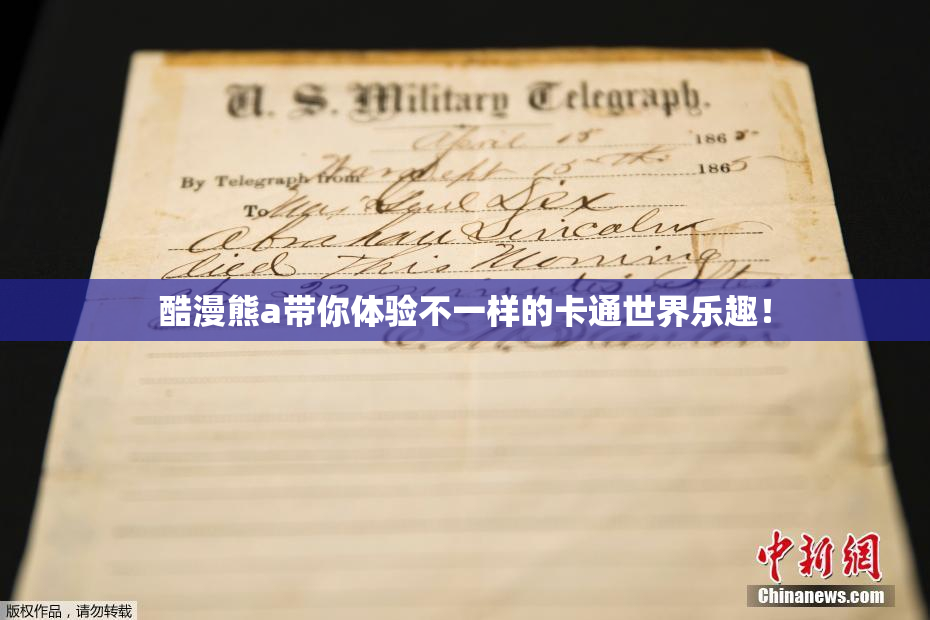 U. S. Military Telegraph.
April 15 1865
By Telegraph from War Dept 15th 1865
To Maj Genl Dix
Abraham Lincoln
died This Morning
at 22 minutes after
酷漫熊a带你体验不一样的卡通世界乐趣！
E. M. Stanton
中新网
Chinanews.com
版权作品，请勿转载